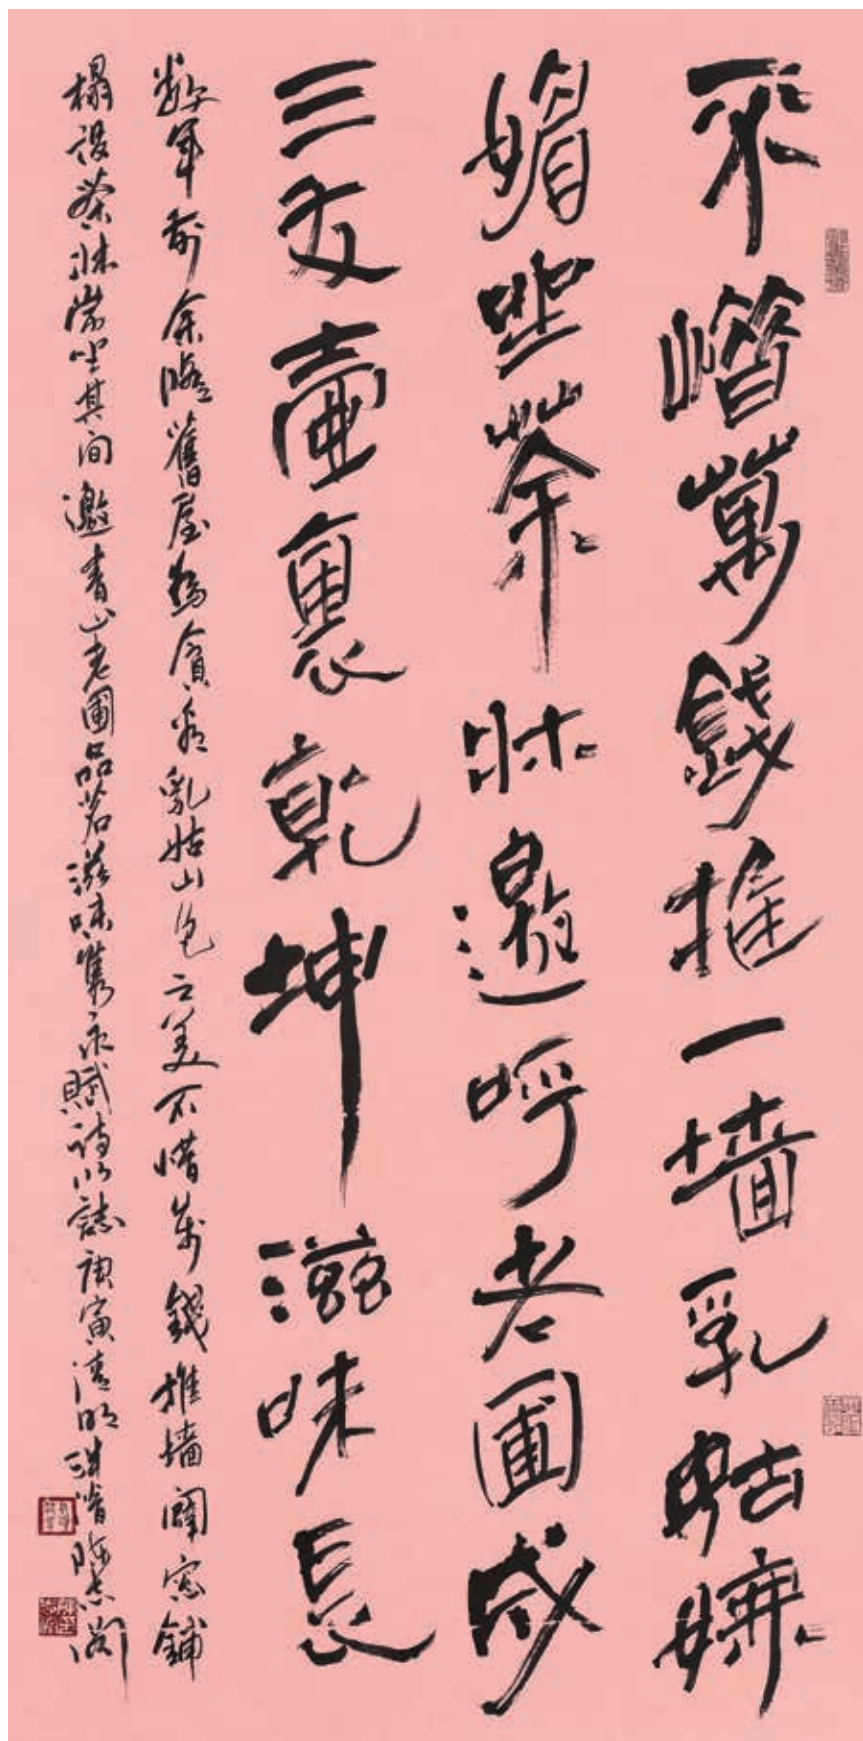 不惜萬錢推一墻乳姑嫵
媚坐茶牀邀呼老圃成
三友壺裏乾坤滋味長
數年前余舊屋為貪看乳姑山色之美不惜萬錢推墻闢窗鋪
榻設茶牀常坐其間邀青山老圃品茗滋味雋永賦詩以誌庚寅清明陳志